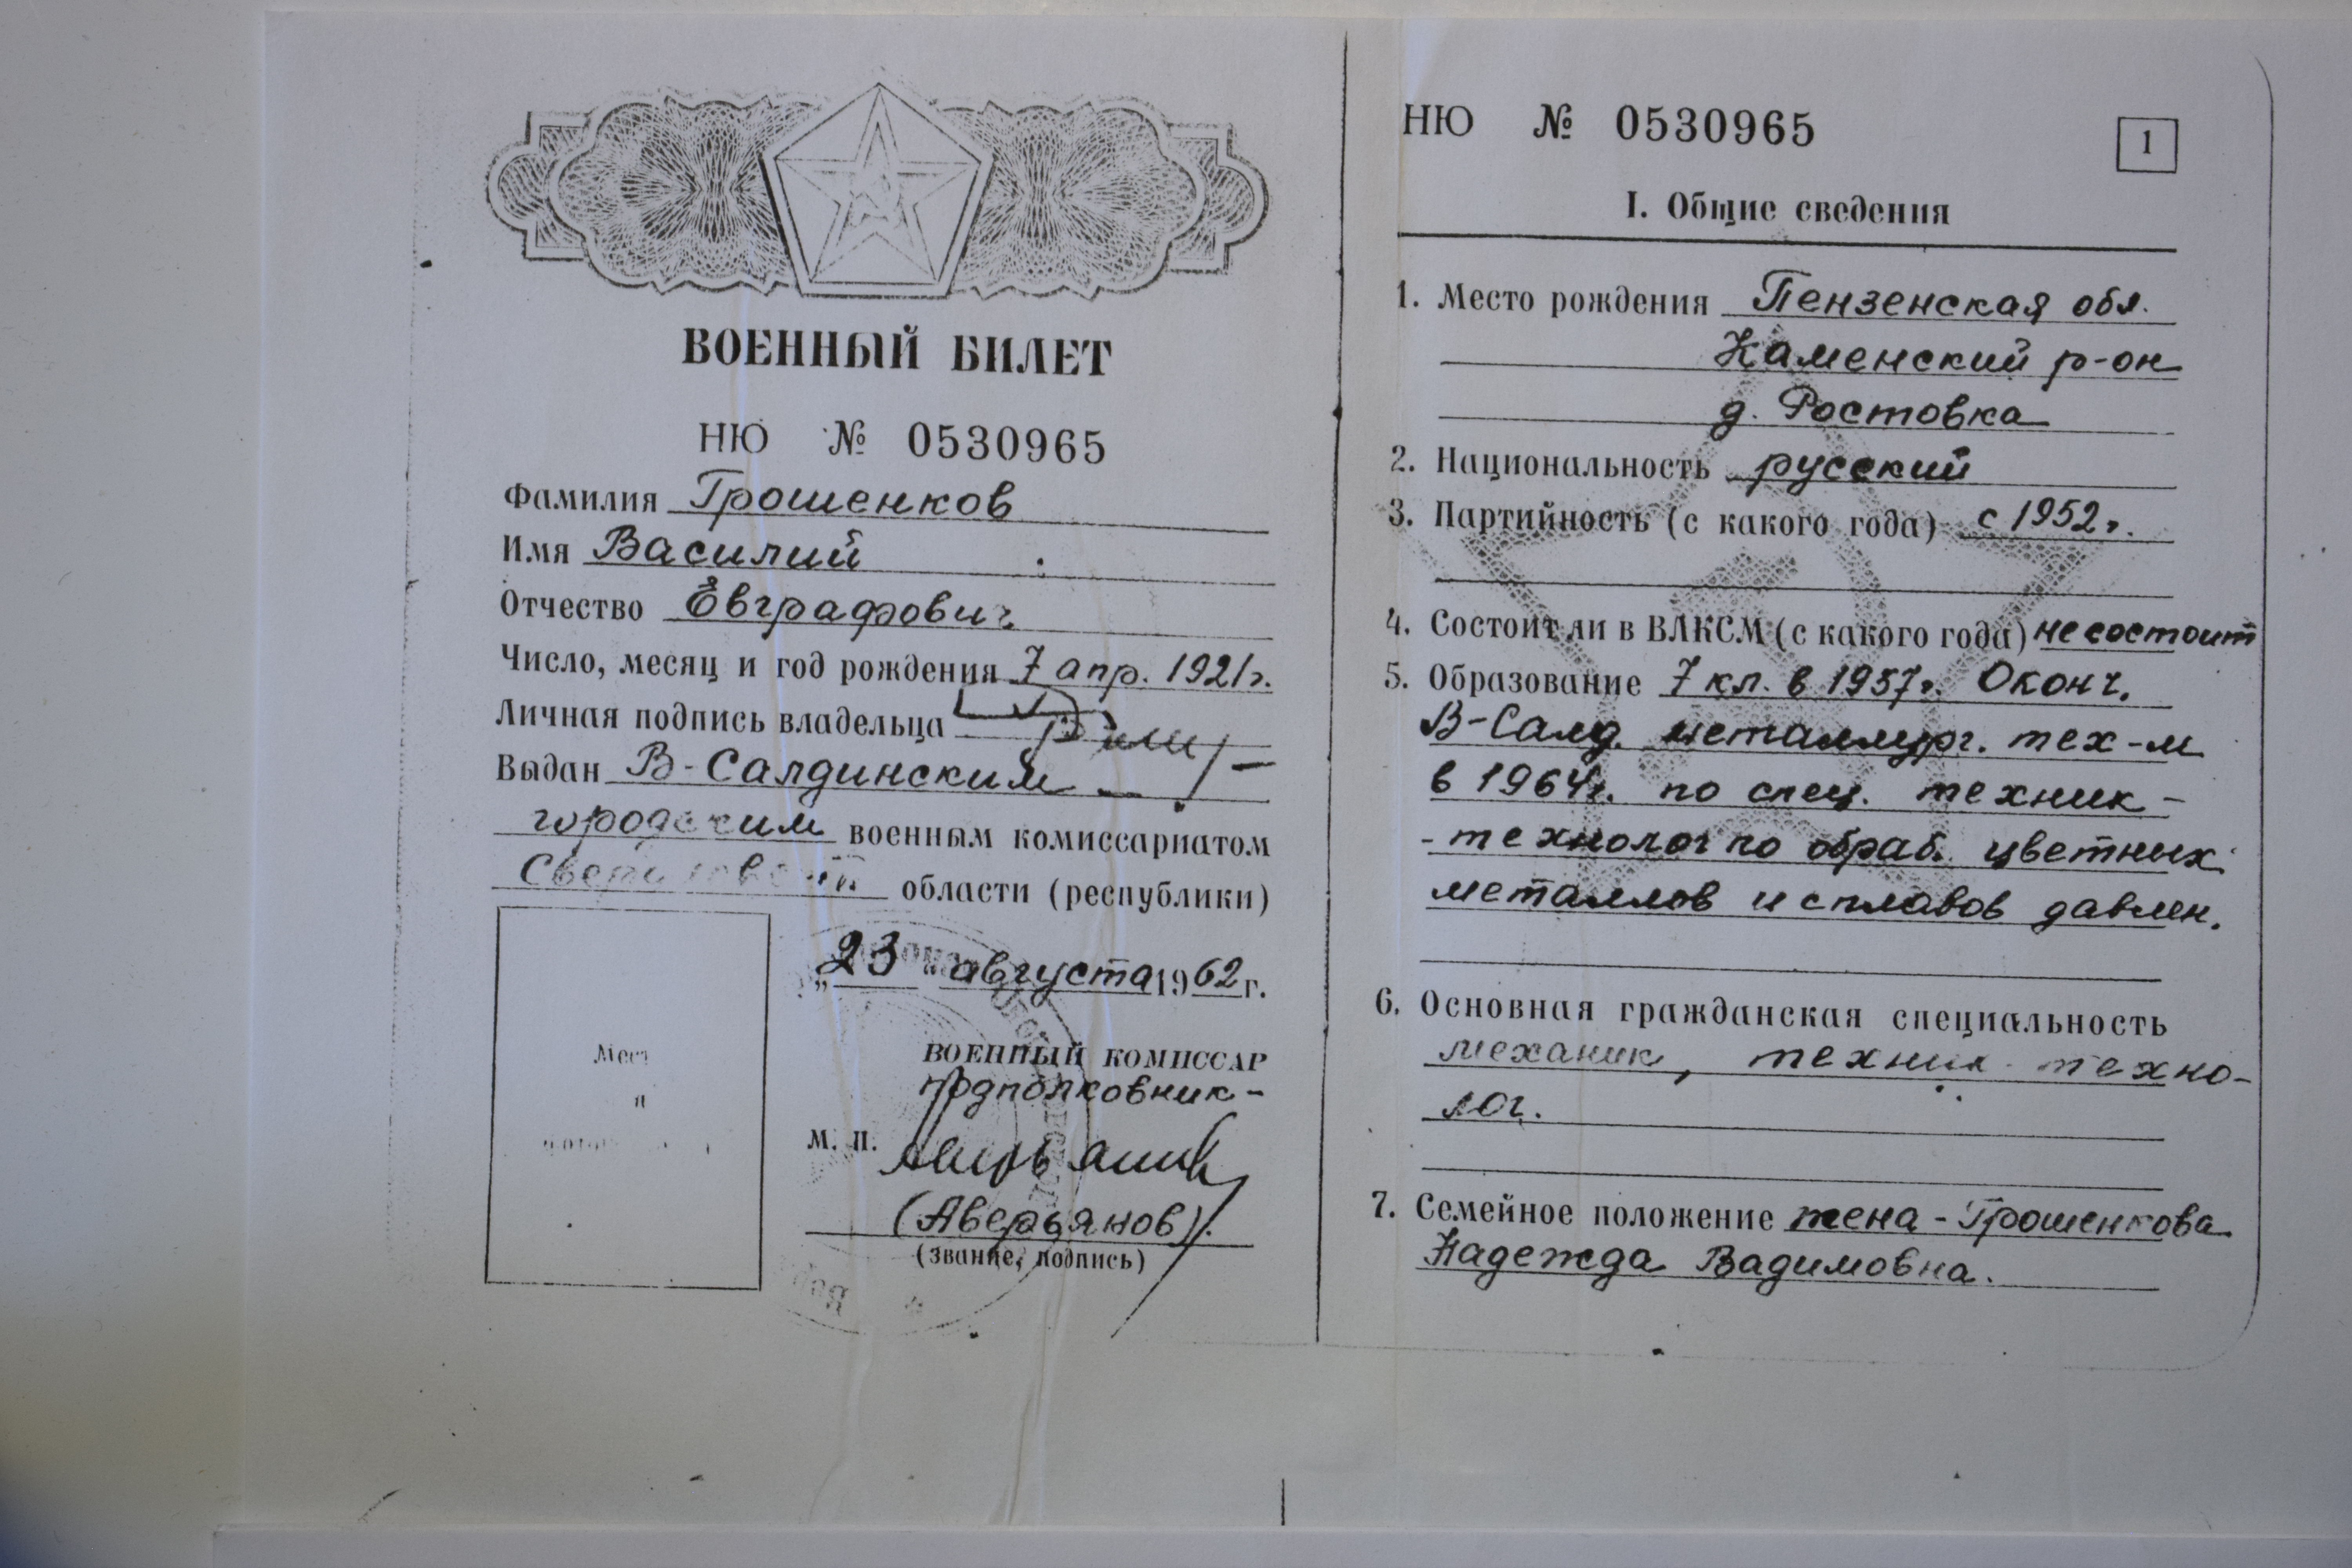 ВОЕННЫЙ БИЛЕТ
НЮ № 0530965
Фамилия Грошенков
Имя Василий
Отчество Евграфович
Число, месяц и год рождения 7 апр. 1921г.
Личная подпись владельца
Выдан В-Салдинским
городским военным комиссариатом
Свердловской области (республики)
„23" августа 1962 г.
ВОЕННЫЙ КОМИССАР
подполковник-
М. П.
(Аверьянов).
(звание, подпись)
НЮ № 0530965
1
I. Общие сведения
1. Место рождения Пензенская обл.
Каменский р-он
д. Ростовка
2. Национальность русский
3. Партийность (с какого года) с 1952г.
4. Состоит ли в ВЛКСМ (с какого года) не состоит
5. Образование 7 кл. в 1957г. Оконч.
В-Салд. металлург. тех-м
в 1964г. по спец. техник-
-технолог по обраб. цветных
металлов и сплавов давлен.
6. Основная гражданская специальность
механик, техник-техно-
лог.
7. Семейное положение жена - Грошенкова
Надежда Вадимовна.